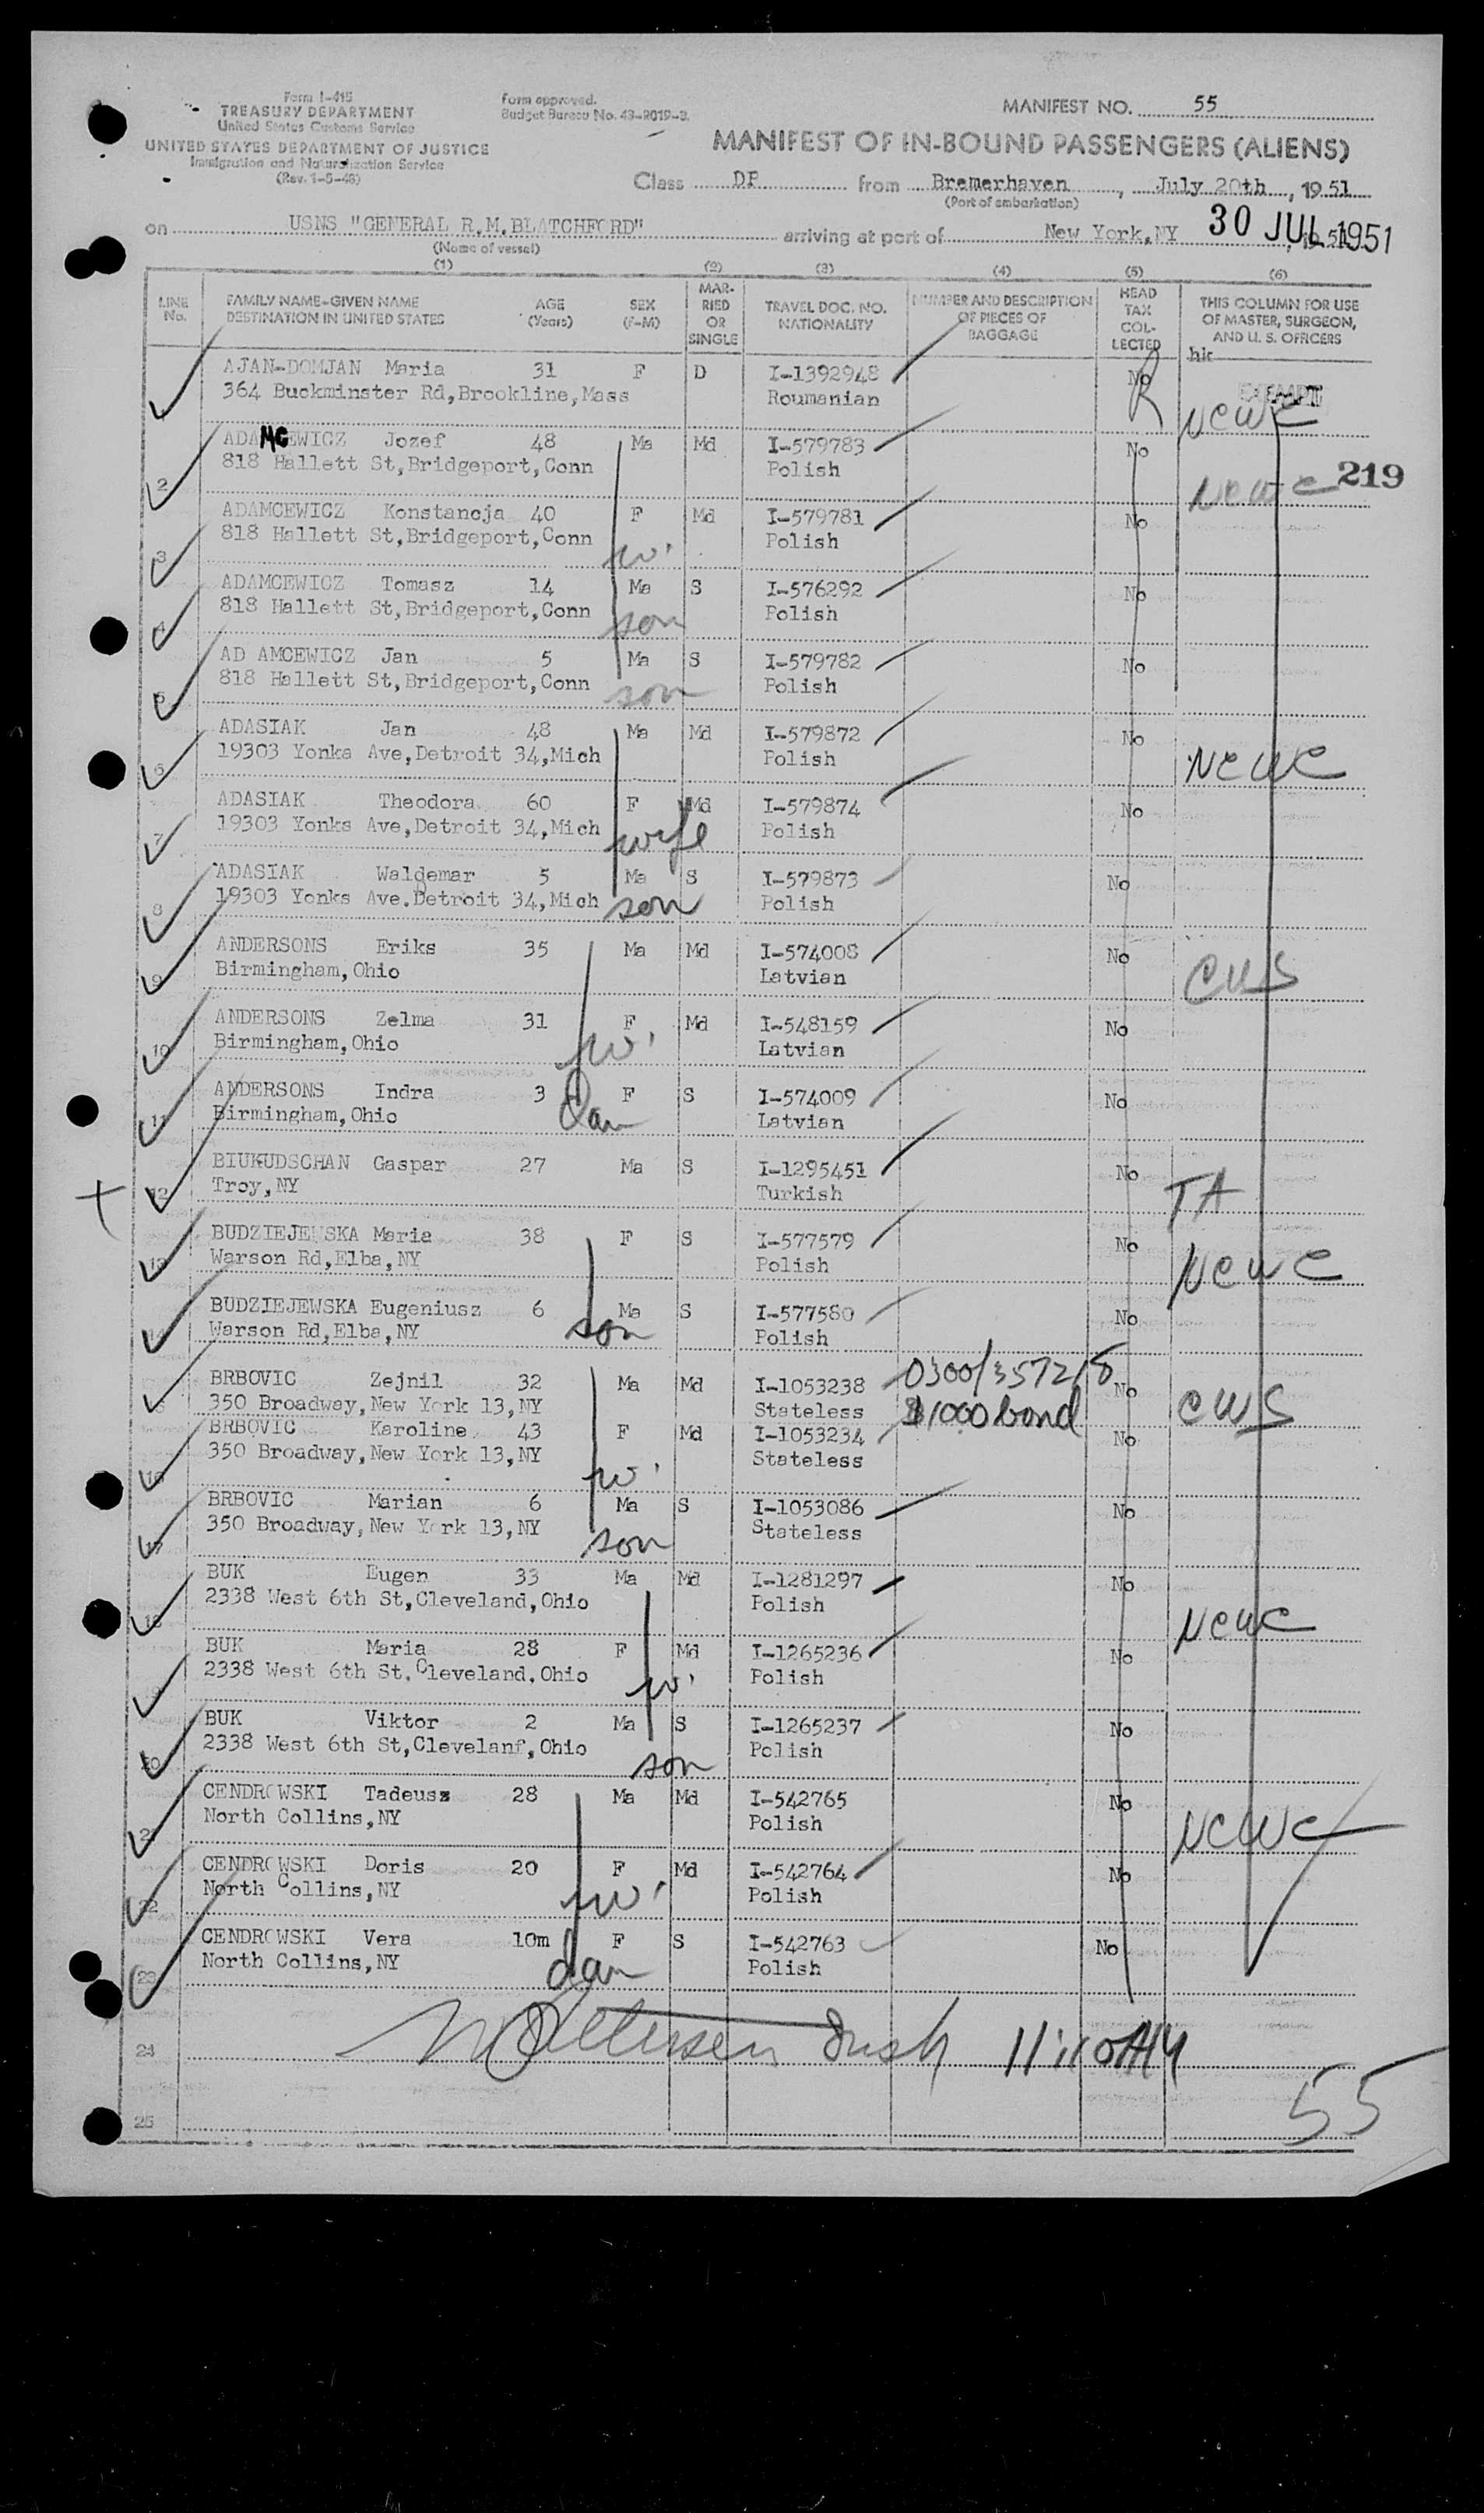 Form I-415
TREASURY DEPARTMENT
United States Customs Service
UNITED STATES DEPARTMENT OF JUSTICE
Immigration and Naturalization Service
(Rev. 1-5-48)
Form approved.
Budget Bureau No. 43-R019-3.
MANIFEST NO. 55
MANIFEST OF IN-BOUND PASSENGERS (ALIENS)
Class DP from Bremerhaven, July 20th, 1951
(Port of embarkation)
on USNS "GENERAL R.M.BLATCHFORD" arriving at port of New York,NY 30 JUL 1951
(Name of vessel)
(1) (2) (3) (4) (5) (6)
LINE No. FAMILY NAME-GIVEN NAME DESTINATION IN UNITED STATES AGE (Years) SEX (F-M) MARRIED OR SINGLE TRAVEL DOC. NO. NATIONALITY NUMBER AND DESCRIPTION OF PIECES OF BAGGAGE HEAD TAX COLLECTED THIS COLUMN FOR USE OF MASTER, SURGEON, AND U. S. OFFICERS
hk
AJAN-DOMJAN Maria 31 F D I-1392948 No EXEMPT
364 Buckminster Rd,Brookline,Mass Roumanian NCWC
ADAMCEWICZ Jozef 48 Ma Md I-579783 No
2 818 Hallett St,Bridgeport,Conn Polish NCWC 219
ADAMCEWICZ Konstancja 40 F Md I-579781 No
3 818 Hallett St,Bridgeport,Conn w. Polish
ADAMCEWICZ Tomasz 14 Ma S I-576292 No
4 818 Hallett St,Bridgeport,Conn son Polish
AD AMCEWICZ Jan 5 Ma S I-579782 No
5 818 Hallett St,Bridgeport,Conn son Polish
ADASIAK Jan 48 Ma Md I-579872 No
6 19303 Yonka Ave,Detroit 34,Mich Polish NCWC
ADASIAK Theodora 60 F Md I-579874 No
7 19303 Yonks Ave,Detroit 34,Mich wife Polish
ADASIAK Waldemar 5 Ma S I-579873 No
8 19303 Yonks Ave.Detroit 34,Mich son Polish
ANDERSONS Eriks 35 Ma Md I-574008 No
9 Birmingham,Ohio Latvian CWS
ANDERSONS Zelma 31 F Md I-548159 No
10 Birmingham,Ohio w. Latvian
ANDERSONS Indra 3 F S I-574009 No
11 Birmingham,Ohio Dau Latvian
BIUKUDSCHAN Gaspar 27 Ma S I-1295451 No
12 Troy,NY Turkish TA
BUDZIEJEWSKA Maria 38 F S I-577579 No
13 Warson Rd,Elba,NY Polish NCWC
BUDZIEJEWSKA Eugeniusz 6 Ma S I-577580 No
14 Warson Rd,Elba,NY son Polish
BRBOVIC Zejnil 32 Ma Md I-1053238 0300/357218 No
15 350 Broadway,New York 13,NY Stateless $1000 bond CWS
BRBOVIC Karoline 43 F Md I-1053234 No
16 350 Broadway,New York 13,NY w. Stateless
BRBOVIC Marian 6 Ma S I-1053086 No
17 350 Broadway,New York 13,NY son Stateless
BUK Eugen 33 Ma Md I-1281297 No
18 2338 West 6th St,Cleveland,Ohio Polish NCWC
BUK Maria 28 F Md I-1265236 No
19 2338 West 6th St,Cleveland,Ohio w. Polish
BUK Viktor 2 Ma S I-1265237 No
20 2338 West 6th St,Clevelanf,Ohio son Polish
CENDROWSKI Tadeusz 28 Ma Md I-542765 No
21 North Collins,NY Polish NCWC
CENDROWSKI Doris 20 F Md I-542764 No
22 North Collins,NY w. Polish
CENDROWSKI Vera 10m F S I-542763 No
23 North Collins,NY dau Polish
24
55
25